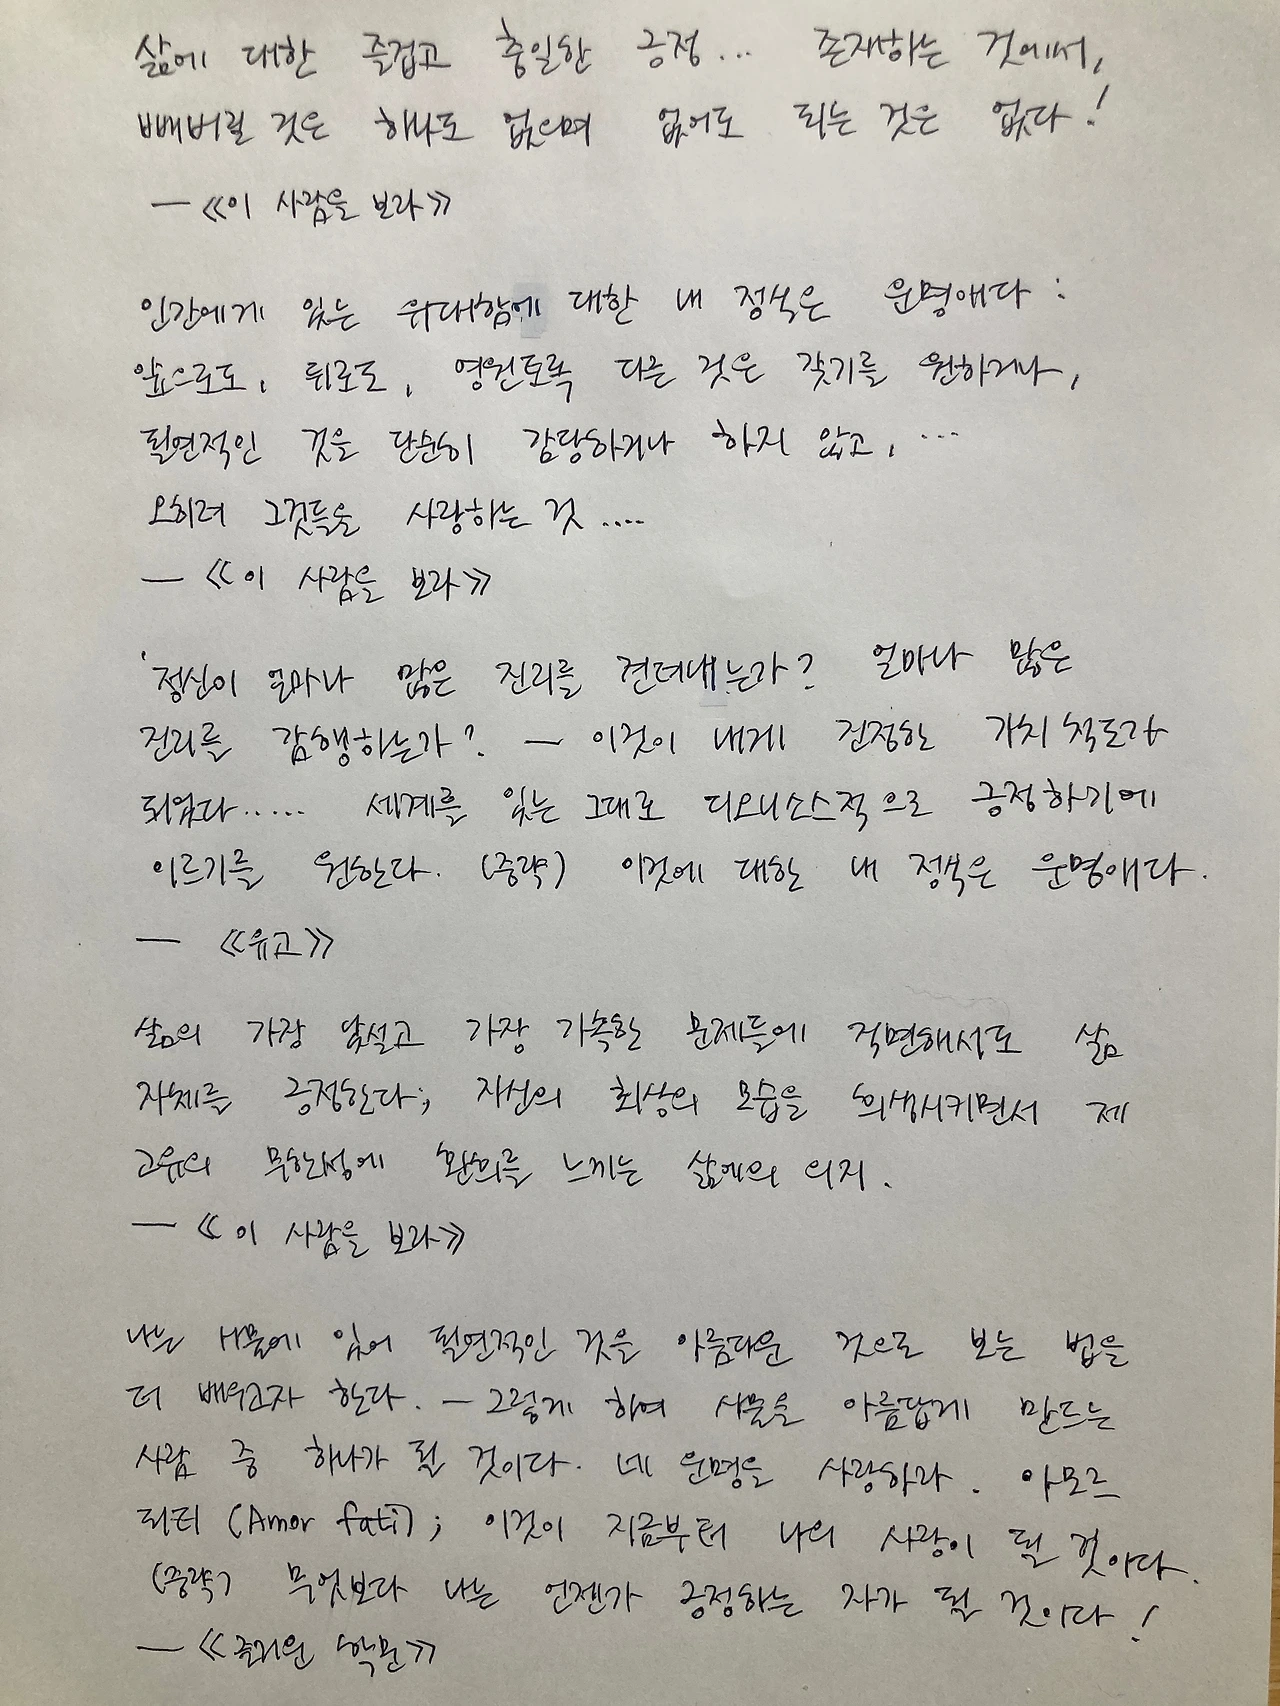 삶에 대한 즐겁고 충일한 긍정... 존재하는 것에서,
빼버릴 것은 하나도 없으며 없어도 되는 것은 없다!
— 《이 사람을 보라》
인간에게 있는 위대함에 대한 내 정식은 운명애다 :
앞으로도, 뒤로도, 영원토록 다른 것은 갖기를 원하거나,
필연적인 것을 단순히 감당하거나 하지 않고, ...
오히려 그것들을 사랑하는 것 ....
— 《이 사람을 보라》
'정신이 얼마나 많은 진리를 견뎌내는가? 얼마나 많은
진리를 감행하는가? — 이것이 내게 진정한 가치 척도가
되었다..... 세계를 있는 그대로 디오니소스적으로 긍정하기에
이르기를 원한다. (중략) 이것에 대한 내 정식은 운명애다.
— 《유고》
삶의 가장 낯설고 가장 가혹한 문제들에 직면해서도 삶
자체를 긍정한다; 자신의 최상의 모습을 희생시키면서 제
고유의 무한성에 환희를 느끼는 삶에의 의지.
— 《이 사람을 보라》
나는 사물에 있어 필연적인 것을 아름다운 것으로 보는 법을
더 배우고자 한다. — 그렇게 하여 사물을 아름답게 만드는
사람 중 하나가 될 것이다. 네 운명을 사랑하라. 아모르
파티 (Amor fati) ; 이것이 지금부터 나의 사랑이 될 것이다.
(중략) 무엇보다 나는 언젠가 긍정하는 자가 될 것이다!
— 《즐거운 학문》